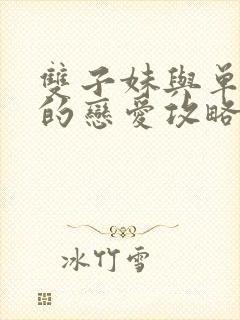 雙子妹與單
的戀愛攻略
冰竹雪